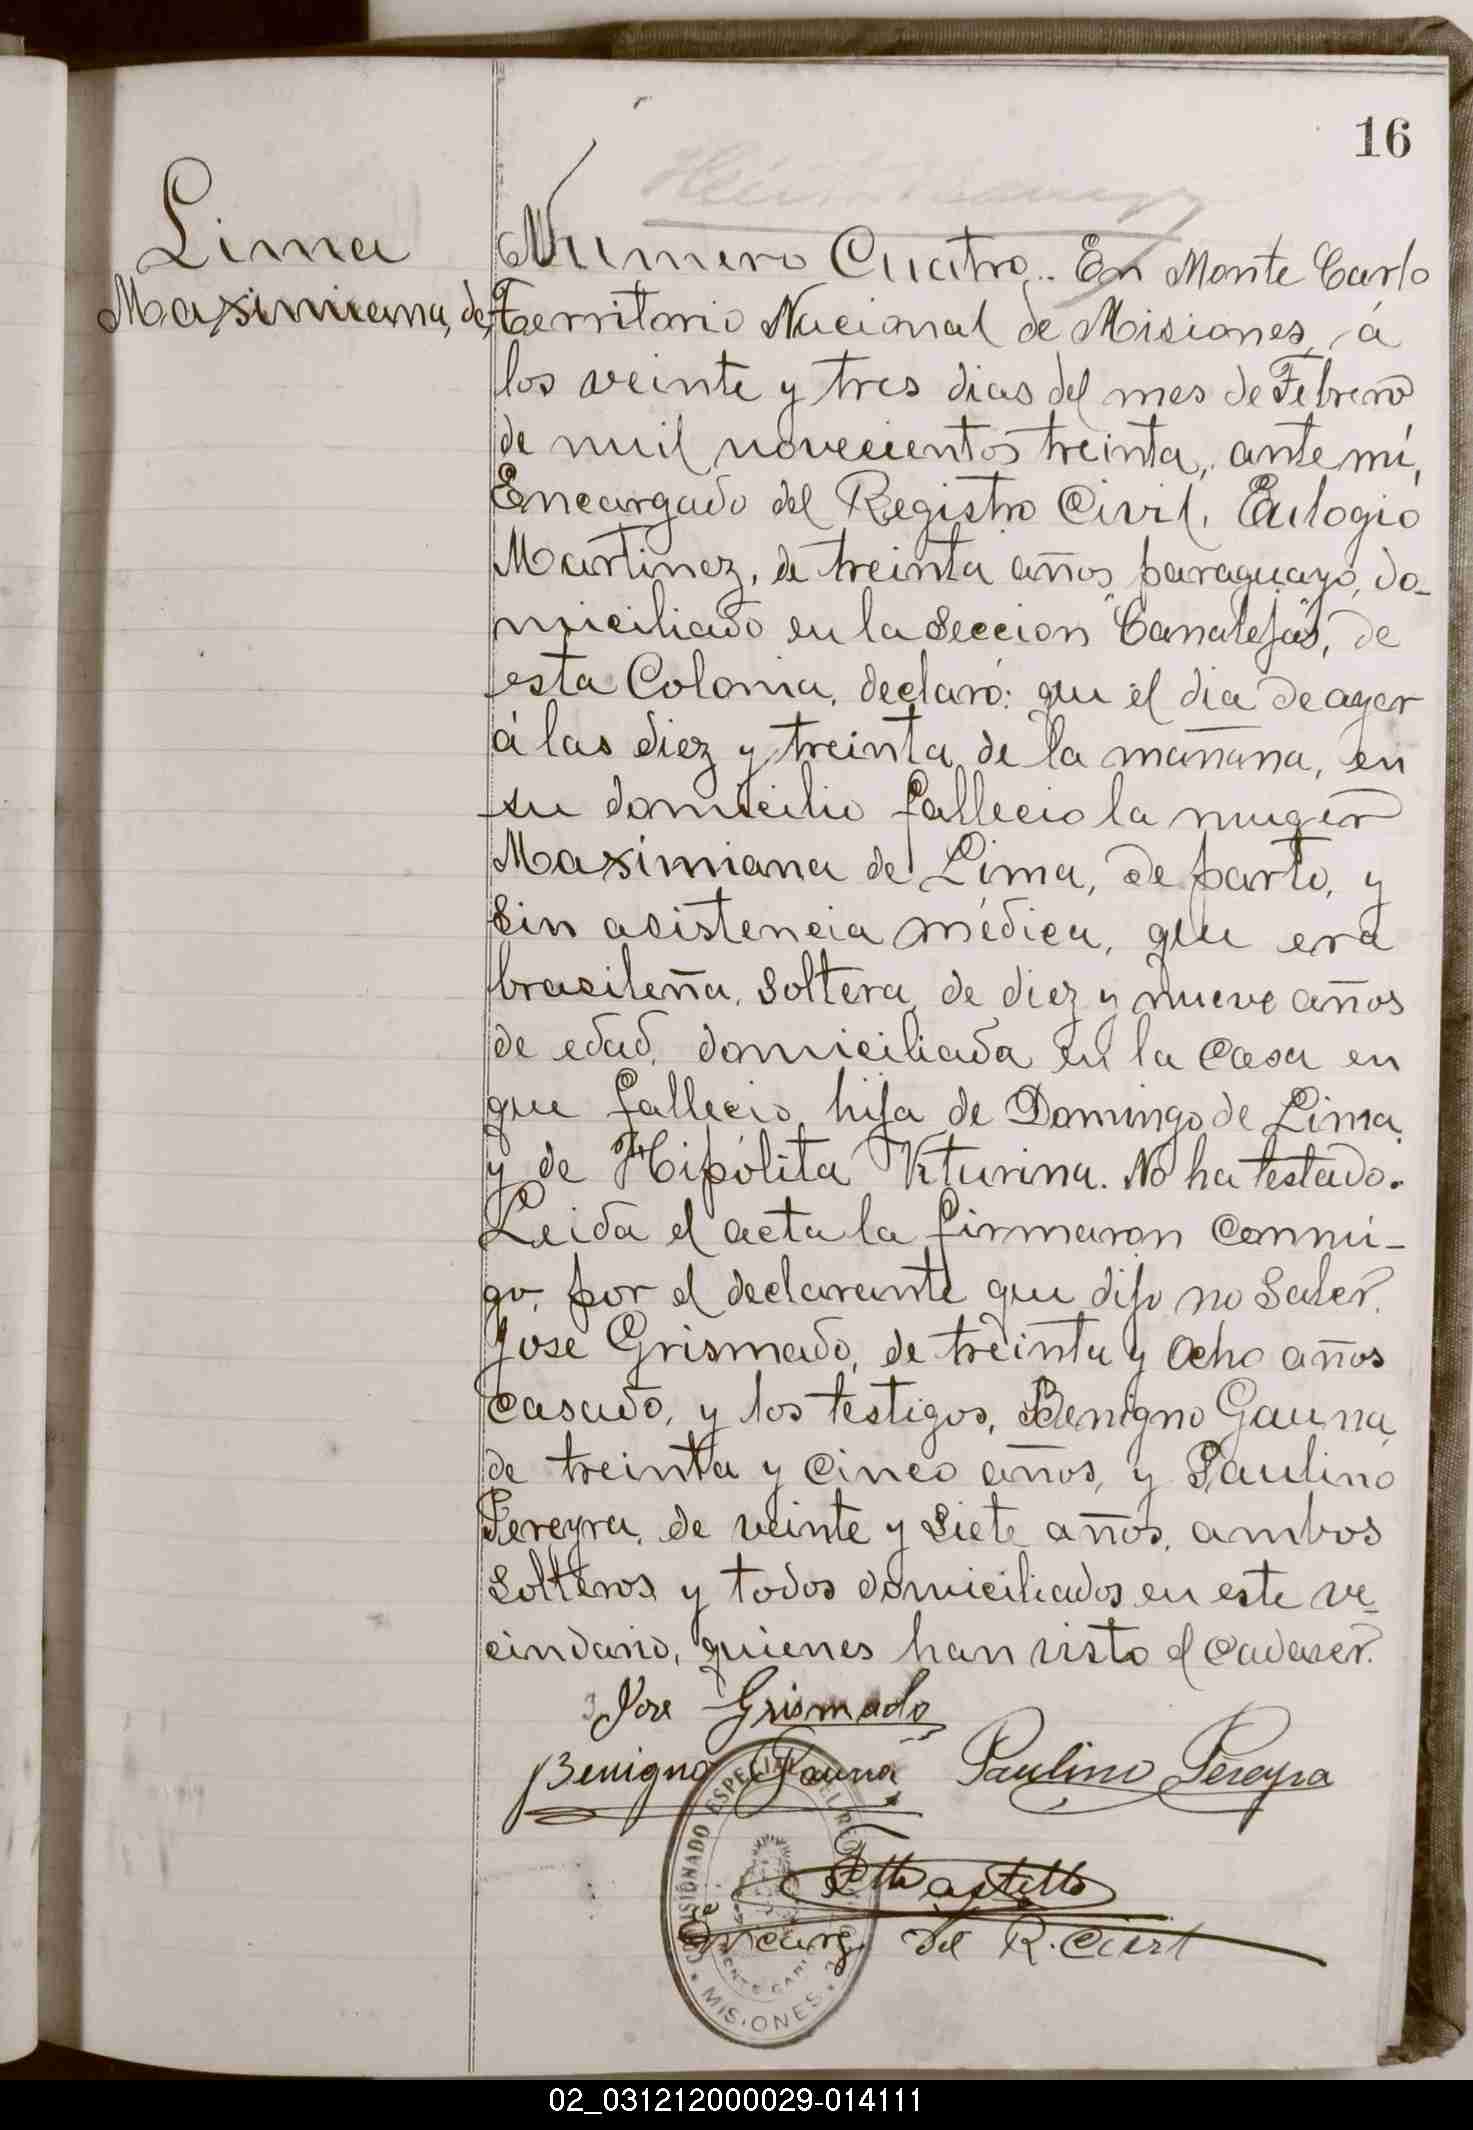 16
Lima
Maximiana, de,
Número Cuatro.. En Monte Carlo
Territorio Nacional de Misiones, á
los veinte y tres dias del mes de Febrero
de mil novecientos treinta, ante mí,
Encargado del Registro Civil, Eulogio
Martinez, de treinta años, paraguayo, do-
miciliado en la seccion "Canalejas", de
esta Colonia, declaró: que el dia de ayer
á las diez y treinta de la mañana, en
su domicilio fallecio la muger
Maximiana de Lima, de parto, y
sin asistencia médica, que era
brasileña, soltera, de diez y nueve años
de edad, domiciliada en la casa en
que fallecio, hija de Domingo de Lima,
y de Hipólita Viturina. No ha testado.
Leida el acta la firmaron conmi-
go, por el declarante que dijo no saber,
José Grismado, de treinta y ocho años
casado, y los testigos, Benigno Gauna,
de treinta y cinco años, y Paulino
Pereyra, de veinte y siete años, ambos
solteros y todos domiciliados en este ve-
cindario, quienes han visto el cadaver.
José Grismado
Benigno Gauna Paulino Pereyra
Encarg. del R. Civil
COMISIONADO ESPECIAL DEL RE
MONTE CARLO
MISIONES
02_031212000029-014111